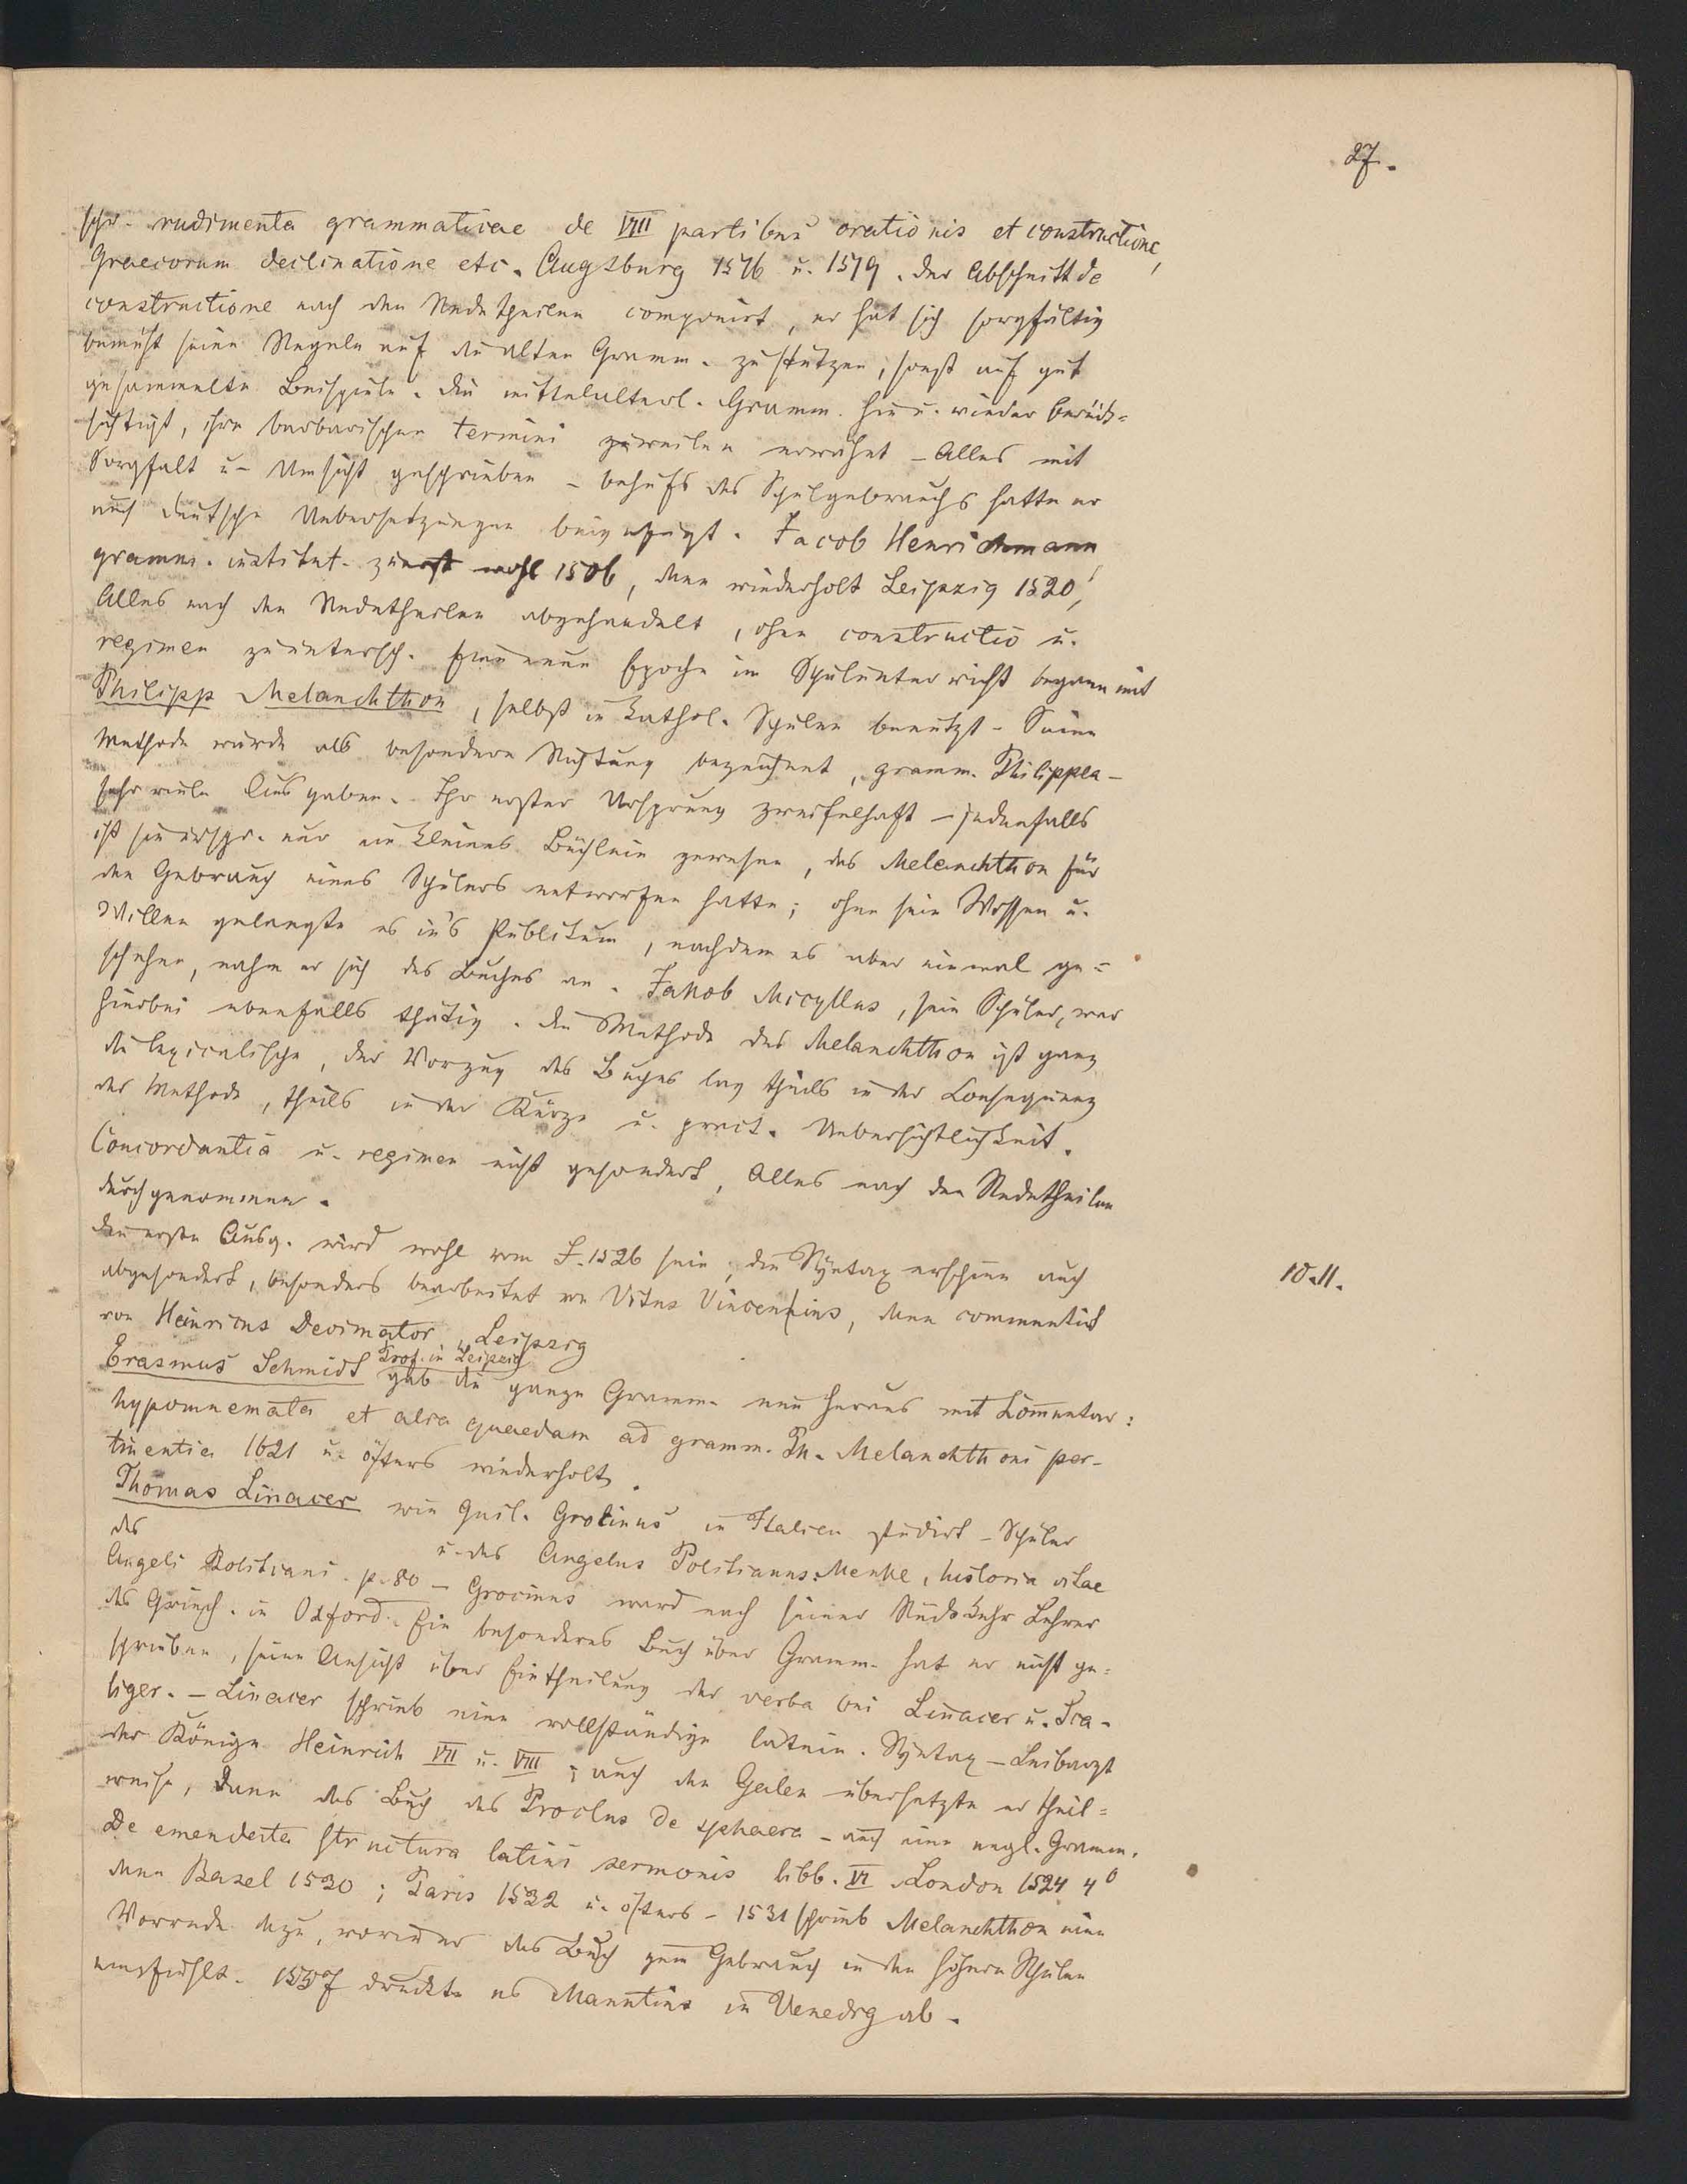 27.
schr. rudimenta grammaticae de VIII partibus orationis et constructione,
Graecorum declinatione etc. Augsburg 1576 u. 1579. Der Abschnitt de
constructione nach den Redetheilen componirt, er hat sich sorgfältig
bemüht seine Regeln auf die alten Gramm. zu stützen, sonst auf gut
gesammelte Beispiele. Die mittelalterl. Gramm. hie u. wieder berück-
sichtigt, ihre barbarischen termini zuweilen erwähnt – Alles mit
Sorgfalt u. Umsicht geschrieben – behufs des Schulgebrauchs hatte er
auch deutsche Uebersetzungen beigefügt. Jacob Henrichmann,
gramm. institut. zuerst wohl 1506, dann wiederholt Leipzig 1520,
Alles nach den Redetheilen abgehandelt, ohne constructio u.
regimen zu untersch. Eine neue Epoche im Schulunterricht begann mit
Philipp Melanchthon, selbst in kathol. Schulen benutzt – Seine
Methode wurde als besondere Richtung bezeichnet, gramm. Philippea –
sehr viele Ausgaben. Ihr erster Ursprung zweifelhaft – jedenfalls
ist sie urspr. nur ein kleines Büchlein gewesen, das Melanchthon für
den Gebrauch eines Schülers entworfen hatte; ohne sein Wissen u.
Willen gelangte es in's Publikum, nachdem es aber einmal ge-
schehen, nahm er sich des Buches an. Jakob Micyllus, sein Schüler, war
hierbei ebenfalls thätig. Die Methode des Melanchthon ist ganz
die lexicalische, der Vorzug des Buches lag theils in der Consequenz
der Methode, theils in der Kürze u. pract. Uebersichtlichkeit.
Concordantia u. regimen nicht gesondert, Alles nach den Redetheilen
durchgenommen.
Die erste Ausg. wird wohl vom J. 1526 sein, die Syntax erschien auch
10.11.
abgesondert, besonders bearbeitet von Vitus Vincentius, dann commentirt
von Heinricus Decimator, Leipzig
Prof. in Leipzig
Erasmus Schmidt gab die ganze Gramm. neu heraus mit Commentar:
hypomnemata et alia quaedam ad gramm. Ph. Melanchthoni per-
tinentia 1621 u. öfters wiederholt.
Thomas Linacer wie Guil. Grocinus in Italien studirt – Schüler
des u. des Angelus Politianus: Menke, historia vitae
Angeli Politiani. p. 80 – Grocinus ward nach seiner Rückkehr Lehrer
des Griech. in Oxford. Ein besonderes Buch über Gramm. hat er nicht ge-
schrieben, seine Ansicht über Eintheilung der verba bei Linacer u. Sca-
liger. – Linacer schrieb eine vollständige latein. Syntax – Leibarzt
der Könige Heinrich VII u. VIII; auch den Galen übersetzte er theil-
weise, dann das Buch des Proclus de sphaera – auch eine engl. Gramm.
De emendata structura latini sermonis libb. VI London 1524 4°
dann Basel 1530; Paris 1532 u. öfters – 1531 schrieb Melanchthon eine
Vorrede dazu, worin er das Buch zum Gebrauch in den höhern Schulen
empfiehlt. 1557 druckte es Manutius in Venedig ab.